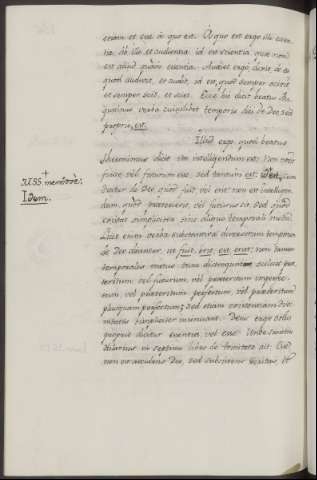 etiam et eue à quo est. A quo est ergo illi essen-
tia ab illo et audientia id est scientia quae non
est aliud quam essentia. Audiet ergo, dixit, à eo
quod audivit, et audit, id est, quod semper scivit
et semper scit, et sciet. Ecce hic dicit beatus Au-
gustinus verba cujuslibet temporis dici de Deo, sed
proprie, est.
Illud ergo quod beatus
Hieronimus dicit ita intelligendum est: Non novit
fuisse vel futurum esse, sed tantum est: idem
doctor de Deo quod fuit, vel erit non est intelligen-
dum, quod praeterierit, vel futurus sit, sed quod
existat simpliciter sine aliquo temporali motu.
Licet enim verba substantiva diversorum temporum
de Deo dicantur, ut fuit, erit, est, erat; non tamen
temporales motus esse distinguunt scilicet prae-
teritum vel futurum, vel praeteritum imperfec-
tum, vel praeteritum perfectum, vel praeteritum
plusquam perfectum; sed essentiam existentiam Divi-
nitatis simpliciter insinuant. Deus ergo solus
proprie dicitur essentia, vel esse. Unde sanctus
Hilarius in septimo libro de trinitate ait: Esse
non est accidens Deo, sed subsistens veritas, et
+
MSS. membran.
Idem.